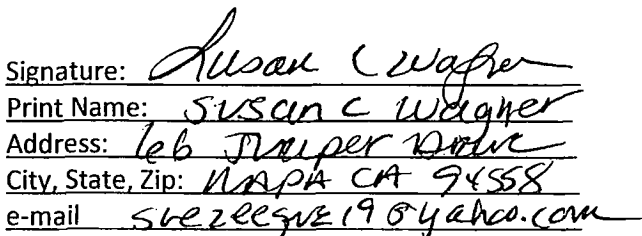 Signature: Susan C Wagner
Print Name: Susan C Wagner
Address: 66 Juniper Drive
City, State, Zip: NAPA CA 94558
e-mail suezeeque19@yahoo.com